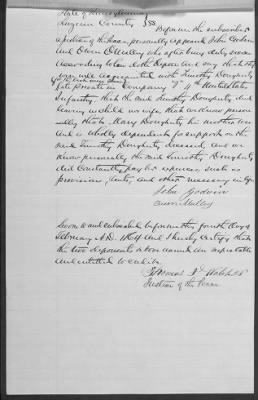 State of Pennsylvania
Luzerne County } SS
Before me the subscriber
a Justice of the Peace personally appeared John Godwin
and Owen O'Malley who after being duly sworn
according to law doth depose and say that they
were well acquainted with Timothy Dougherty
late private in Company 4th United States
Infantry. that the said Timothy Dougherty did
leaving no child no wife, that we know person
ally that Mary Dougherty his mother was
and is wholly dependent for support on the
said Timothy Dougherty deceased, and we
know personally the said Timothy Dougherty
did constantly pay her expenses, such as
provisions, rents, and other necessary
John Godwin
Owen Malley
Sworn to and subscribed before me this fourth day of
February A.D. and I hereby certify that
the two deponents above named are respectable
and entitled to credit.
Thomas
Justice of the Peace